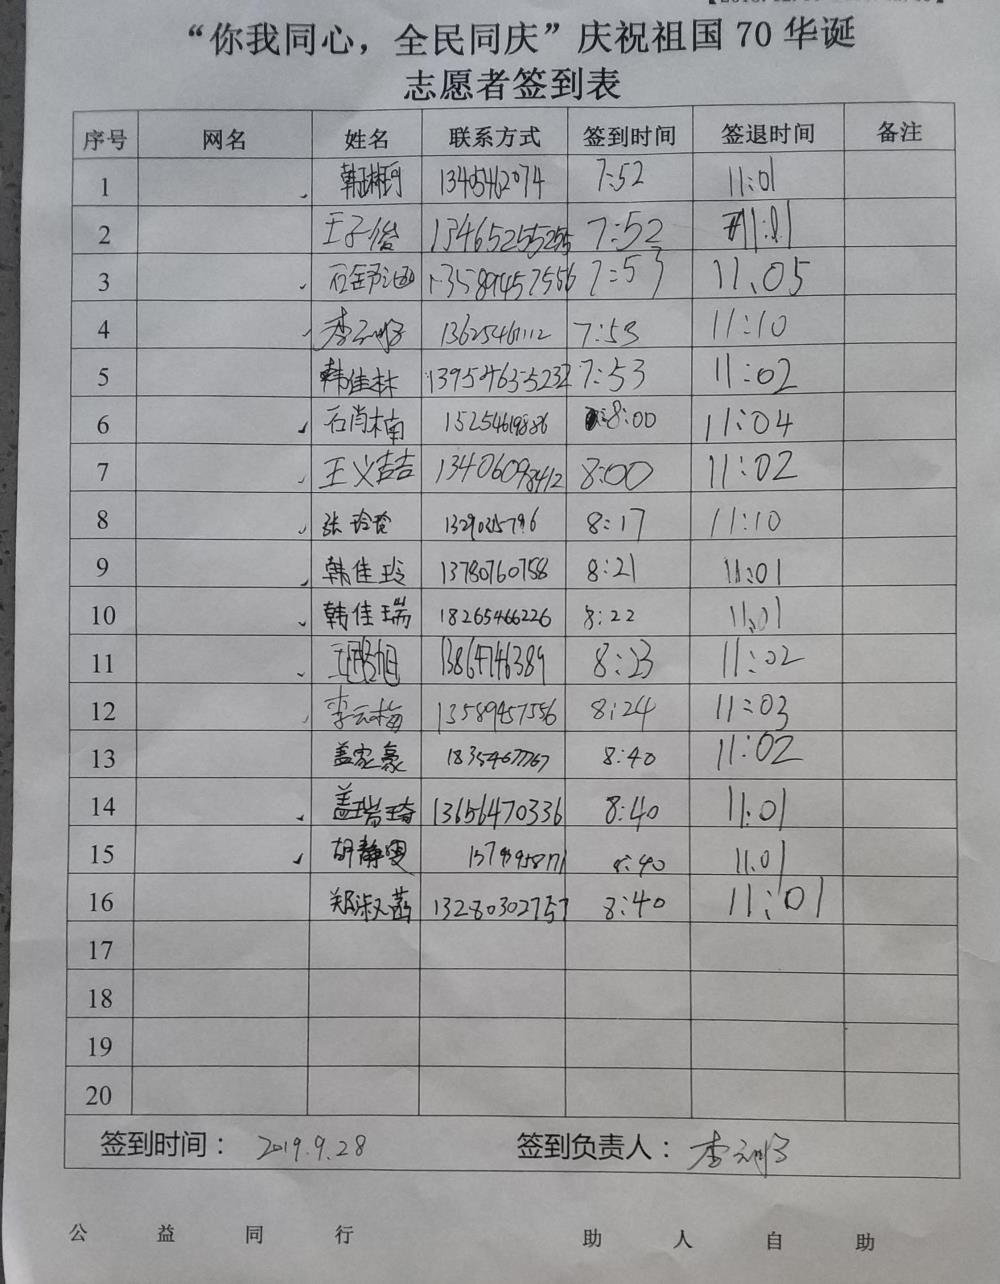 “你我同心，全民同庆”庆祝祖国 70 华诞
志愿者签到表
序号 网名 姓名 联系方式 签到时间 签退时间 备注
1 13405462074 7:52 11:01
2 王子俊 13465255255 7:52 11:01
3 13589457556 7:53 11.05
4 李云鹏 13625461112 7:53 11:10
5 韩佳林 13954635232 7:53 11:02
6 石肖楠 15254619886 8:00 11:04
7 王义喆 13406098412 8:00 11:02
8 张玲玲 8:17 11:10
9 韩佳玲 13780760758 8:21 11:01
10 韩佳瑞 18265466226 8:22 11:01
11 8:23 11:02
12 李云梅 13589457556 8:24 11:03
13 盖家豪 18354677767 8:40 11:02
14 盖瑞琦 13656470336 8:40 11:01
15 胡静雯 8:40 11:01
16 郑淑茜 13280302757 8:40 11:01
17
18
19
20
签到时间： 2019.9.28 签到负责人： 李云鹏
公 益 同 行 助 人 自 助